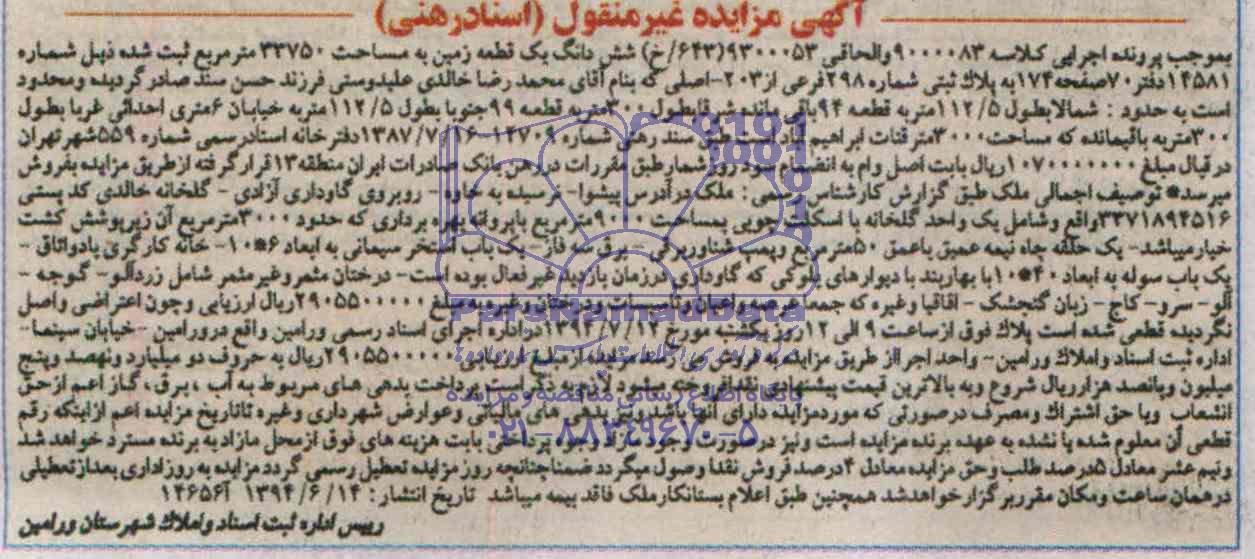 آگهی مزایده غیرمنقول (اسنادرهنی)
بموجب پرونده اجرایی کلاسه ۹۰۰۰۰۸۳ والحاقی ۹۳۰۰۰۵۳(۶۴۳/خ) شش دانگ یک قطعه زمین به مساحت ۳۳۷۵۰ مترمربع ثبت شده ذیل شماره
۱۴۵۸۱دفتر ۷۰صفحه۱۷۴به پلاک ثبتی شماره ۲۹۸فرعی از۲۰۳-اصلی که بنام آقای محمد رضا خالدی علیدوستی فرزند حسن سند صادر گردیده ومحدود
است به حدود : شمالابطول ۱۱۲/۵متربه قطعه ۹۴باقی مانده شرقابطول ۳۰۰متربه قطعه ۹۹جنوبا بطول ۱۱۲/۵ متربه خیابان ۶متری احداثی غربا بطول
۳۰۰متربه باقیمانده که مساحت۳۰۰۰متر قنات ابراهیم طبق سند رهنی شماره ۱۳۸۷/۷/۱۶-۱۲۷۰۹دفترخانه اسنادرسمی شماره ۵۵۹شهرتهران
درقبال مبلغ ۱۰۷۰۰۰۰۰۰۰ریال بابت اصل وام به انضمام سود روزشمارطبق مقررات دررهن بانک صادرات ایران منطقه۱۳قرارگرفته ازطریق مزایده بفروش
میرسد* توصیف اجمالی ملک طبق گزارش کارشناس رسمی : ملک درآدرس پیشوا- نرسیده به جاوه- روبروی گاوداری آزادی - گلخانه خالدی کد پستی
۳۳۷۱۸۹۴۵۱۶واقع وشامل یک واحد گلخانه با اسکلت چوبی بمساحت ۹۰۰۰متر مربع باپروانه بهره برداری که حدود ۳۰۰۰مترمربع آن زیرپوشش کشت
خیارمیباشد- یک حلقه چاه نیمه عمیق باعمق ۵۰متر وپمپ شناوربرقی - برق سه فاز- یک باب استخر سیمانی به ابعاد ۶*۱۰- خانه کارگری بادواتاق -
یک باب سوله به ابعاد ۴۰*۱۰با بهاربند با دیوارهای بلوکی که گاوداری درزمان بازدید غیرفعال بوده است- درختان مثمر وغیر مثمر شامل زردآلو- گوجه -
آلو - سرو- کاج- زبان گنجشک - اقاقیا وغیره که جمعا عرصه واعیان وتاسیسات ودرختان وغیره به مبلغ ۲۹۰۵۵۰۰۰۰۰ریال ارزیابی وچون اعتراضی واصل
نگردیده قطعی شده است پلاک فوق ازساعت ۹ الی ۱۲ روز یکشنبه مورخ ۱۳۹۴/۷/۱۲دراداره اجرای اسناد رسمی ورامین واقع درورامین -خیابان سینما-
اداره ثبت اسناد واملاک ورامین- واحد اجرا از طریق مزایده به فروش می رسد مزایده ازمبلغ ارزیابی ۲۹۰۵۵۰۰۰۰۰ریال به حروف دو میلیارد ونهصد وپنج
میلیون وپانصد هزارریال شروع وبه بالاترین قیمت پیشنهادی نقدا فروخته میشود لازم به ذکر است پرداخت بدهی های مربوط به آب ،برق،گاز اعم ازحق
انشعاب ویا حق اشتراک ومصرف درصورتی که موردمزایده دارای آنها باشدونیز بدهی های مالیاتی وعوارض شهرداری وغیره تاتاریخ مزایده اعم ازاینکه رقم
قطعی آن معلوم شده یا نشده به عهده برنده مزایده است ونیز درصورت وجود مازاد وجوه پرداختی بابت هزینه های فوق ازمحل مازادبه برنده مسترد خواهد شد
ونیم عشر معادل ۵درصد طلب وحق مزایده معادل ۴درصد فروش نقدا وصول میگردد ضمناچنانچه روز مزایده تعطیل رسمی گردد مزایده به روزاداری بعدازتعطیلی
درهمان ساعت ومکان مقرربرگزارخواهدشد همچنین طبق اعلام بستانکارملک فاقد بیمه میباشد تاریخ انتشار: ۱۳۹۴/۶/۱۴ آ۱۴۶۵۶
رییس اداره ثبت اسناد واملاک شهرستان ورامین
ParsNamadData
پایگاه اطلاع رسانی مناقصه و مزایده
۰۲۱-۸۸۳۴۹۶۷۰-۵